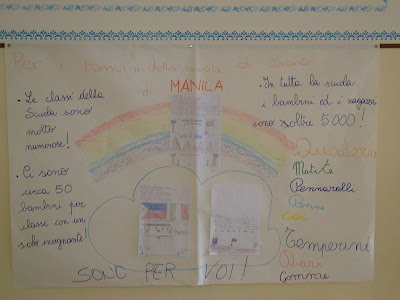 Per i bambini della scuola di
di MANILA
• Le classi della
Scuola sono
molto
numerose!
• Ci sono
circa 50
bambini per
classe con un
solo insegnante!
• In tutta la scuola
i bambini ed i ragazzi
sono oltre 5000!
Quaderni
Matite
Pennarelli
Penne
Temperini
Diari
Gomme
SONO PER VOI!